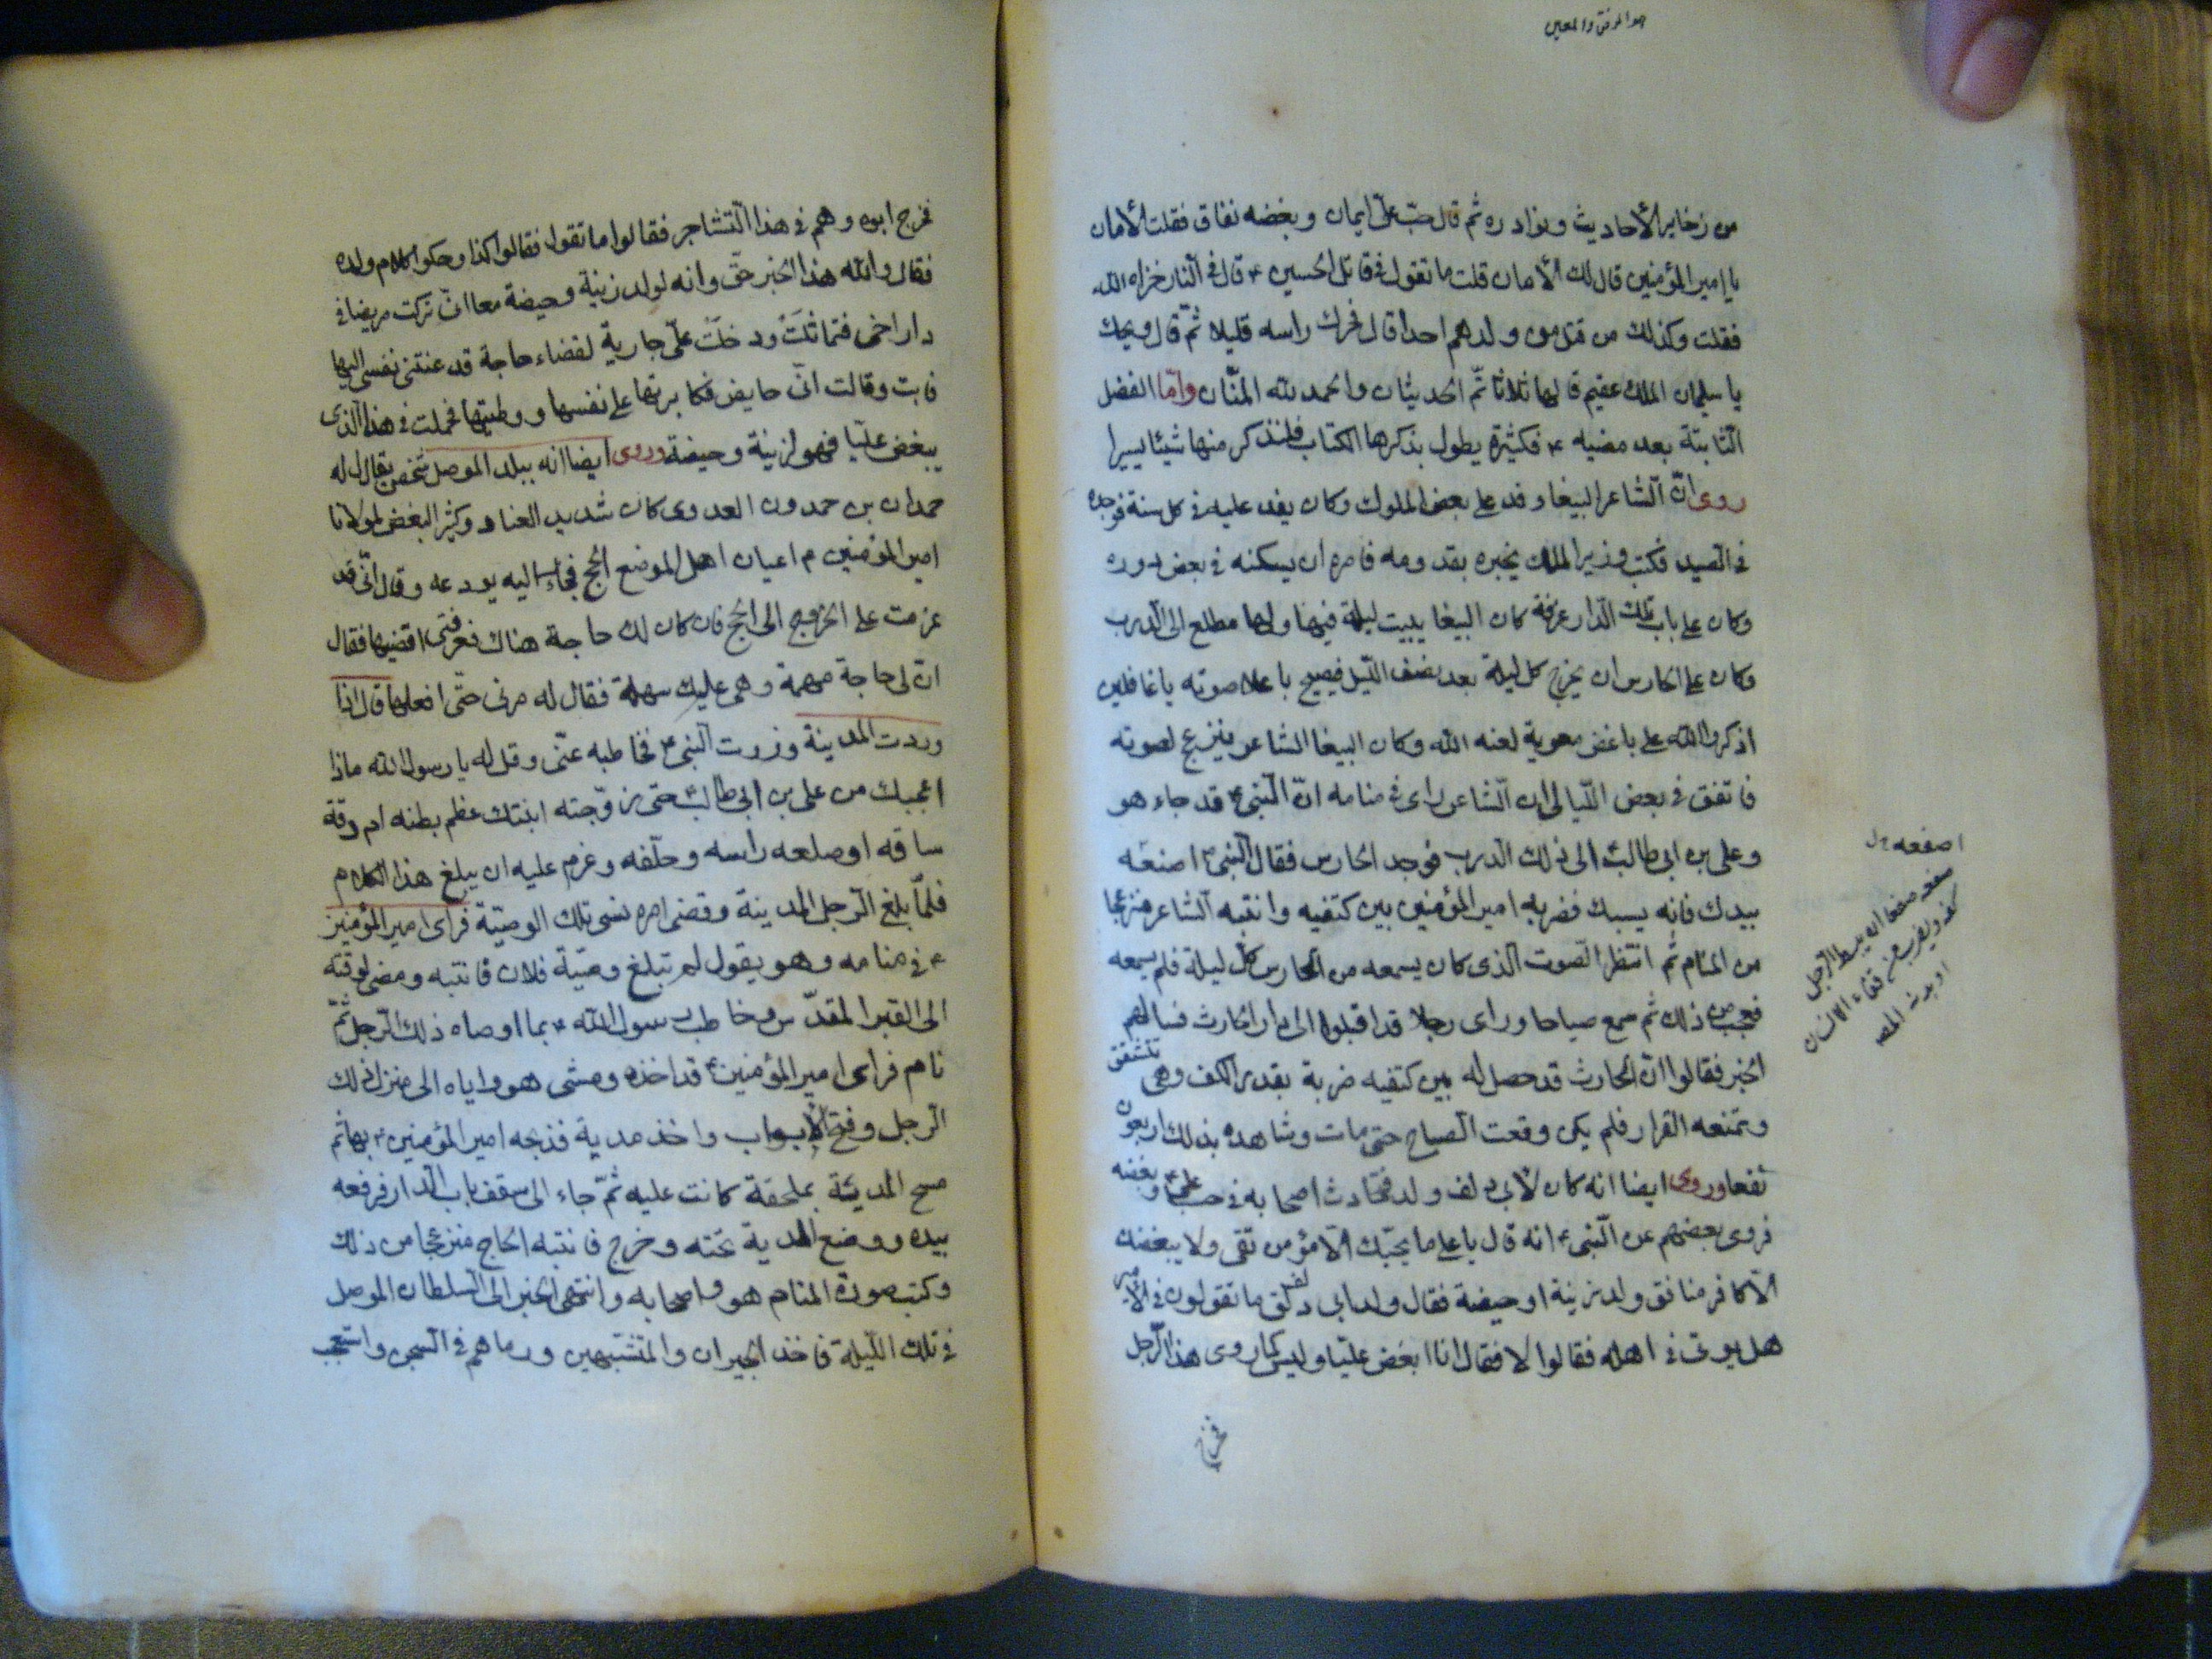 هو الموفق والمعين
من زخاير الأحاديث ونوادره ثم قال حبّ علىّ ايمان وبغضه نفاق فقلت الأمان
يا امير المؤمنين قال لك الأمان قلت ما تقول فى قاتل الحسين ع قال فى النار خزاه الله
فقلت وكذلك من قتل من ولدهم احدا قال فحرك راسه قليلا ثمّ قال ويحك
يا سليمان الملك عقيم قالها ثلاثا تمّ الحديثان والحمد لله المنّان وامّا الفضل
الثابتة بعد مضيه ع فكثيرة يطول بذكرها الكتاب فلنذكر منها شيئا يسيرا
روى انّ الشاعر الببغا وفد على بعض الملوك وكان يفد عليه فى كل سنة فوجده
فى الصيد فكتب وزير الملك يخبره بقدومه فامره ان يسكنه فى بعض دوره
وكان على باب تلك الدار غرفة كان الببغا يبيت ليلة فيها ولها مطلع الى الدرب
وكان على الحارس ان يخرج كل ليلة بعد نصف الليل فيصيح باعلا صوته يا غافلين
اذكروا الله على باغض معوية لعنه الله وكان الببغا الشاعر ينزعج لصوته
فاتفق فى بعض الليالى ان الشاعر راى فى منامه انّ النبى ص قد جاء هو
وعلى بن ابى طالب الى ذلك الدرب فوجد الحارس فقال النبى ص اصفعه
بيدك فانه يسبك فضربه امير المؤمنين بين كتفيه وانتبه الشاعر منزعجا
من المنام ثم انتظر الصوت الذى كان يسمعه من الحارس كل ليلة فلم يسمعه
فعجب من ذلك ثم سمع صياحا وراى رجلا قد اقبلوا الى دار الحارث فسالهم
الخبر فقالوا انّ الحارث قد حصل له بين كتفيه ضربة بقدر الكف وهى تنشقق
وتمنعه القرار فلم يكن وقعت الصباح حتى مات وشاهده بذلك اربعون
نفعا وروى ايضا انه كان لأبى دلف ولد فتحادث اصحابه فى حب علىّ ع وبغضه
فروى بعضهم عن النّبى ص انه قال يا على ما يحبّك الّا مؤمن تقى ولا يبغضك
الّا كافر منافق ولد زنية او حيضة فقال ولد ابى دلف ما تقولون فى الأمير
هل يوتى فى اهله فقالوا لا فقال انا ابغض عليّا وليس كما روى هذا الرّجل
فخرج
اصفعه
صفعه صفعا اذ يبسط الرجل
كفه ويضرب على قفاء الانسان
او بدنه
فخرج ابوه وهم فى هذا التشاجر فقالوا ما تقول فقالوا كذا وحكوا كلام ولده
فقال والله هذا الخبر حقّ وانه لولد زنية وحيضة معا انى تركت مريضا فى
دار اخى فتماثلتُ ودخلتْ علىّ جارية لقضاء حاجة قد عنتنى نفسى اليها
فابت وقالت انّى حايض فكابرتها على نفسها ووطيتها فحملت فى هذا الّذى
يبغض عليّا فهو لزنية وحيضة وروى ايضا انه ببلد الموصل شخص يقال له
حمدان بن حمدون العدوى كان شديد العناد وكثير البغض لمولانا
امير المؤمنين م اعيان اهل الموضع الحج فجاء اليه يودعه وقال انّى قد
عزمت على الخروج الى الحج فان كان لك حاجة هناك فعرفتى اقضيها فقال
انّ لى حاجة مهمة وهى عليك سهلة فقال له مرنى حتّى افعلها قال اذا
وردت المدينة وزرت النّبى ص فخاطبه عنّى وقل له يا رسول الله ماذا
اعجبك من على بن ابى طالب حتى زوّجته ابنتك عظم بطنه ام دقة
ساقه او صلعه راسه وحلّفه وعزم عليه ان يبلغ هذا الكلام
فلمّا بلغ الرّجل المدينة وقضى امره نسى تلك الوصيّة فراى امير المؤمنين
ع فى منامه وهو يقول لم تبلغ وصيّة فلان فانتبه ومضى لوقته
الى القبر المقدّس وخاطب رسول الله ص بما اوصاه ذلك الرّجل ثمّ
نام فراى امير المؤمنين ع قد اخذه ومشى هو واياه الى منزل ذلك
الرّجل وفتح الأبواب واخذ مدية فذبحه امير المؤمنين ع بها ثم
مسح المدية بملحفة كانت عليه ثمّ جاء الى سقف باب الدار فرفعه
بيده ووضع المدية تحته وخرج فانتبه الحاج منزعجا من ذلك
وكتب صورة المنام هو واصحابه وانتهى الخبر الى السلطان الموصل
فى تلك اللّيلة فاخذ الجيران والمتشبهين ورماهم فى السجن واستعجب